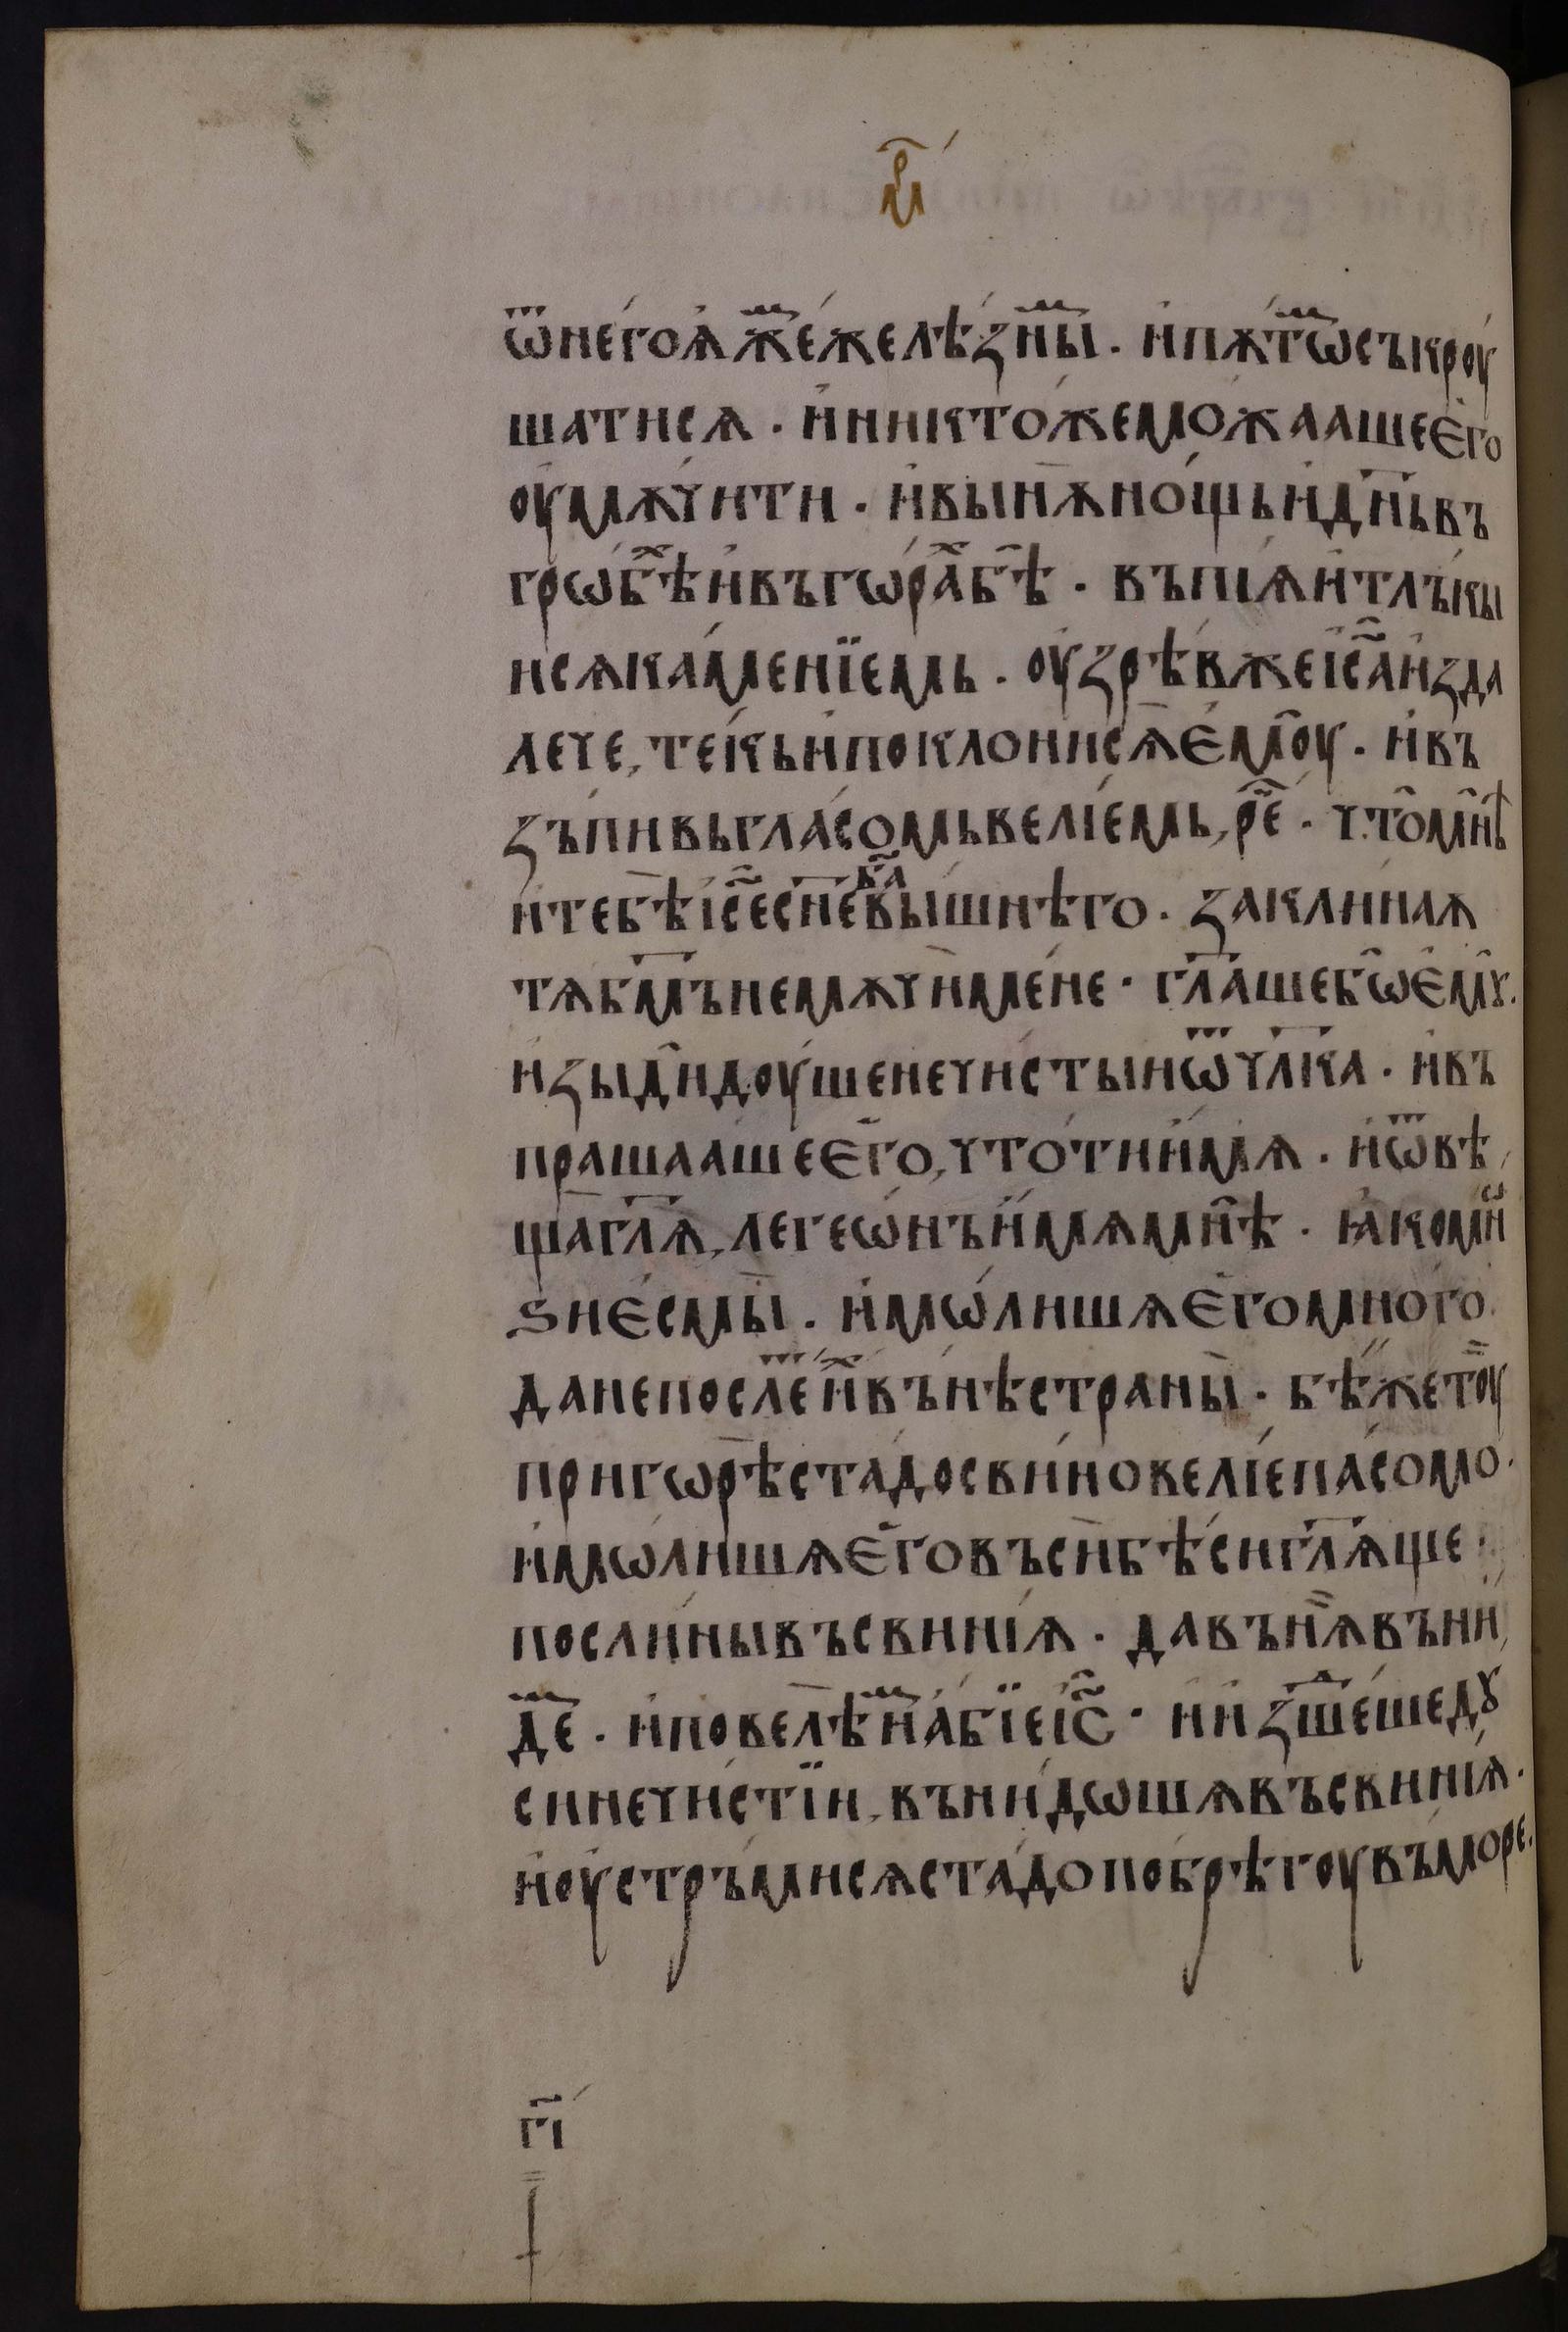 м҃р
ѿне́гоѧ҆ѫ҄же́желѣ́зны҄. и҆пѫ́т҄ѡсъкроу́
шатисѧ. и҆никто́жемо́жаашеє҆го
оу҆мѫчити. и҆вынѫно́щьи҆дн҃ьвъ
грѡ́б҄ѣи҆въгѡ́рабѣ̑. въпїѧи҆тлъкы
исѧка́менїемь. оу҆зрѣ́вжеі҆с҃аи҆зда
лече, те́кьи҆поклонисѧє҆моу̑. и҆въ
зъпи́вьгла́сомьвелїемь, ре҄. что̑мнѣ̑
и҆тебѣі҆с҃есн҃еба҃вы́шнѣго. заклинаѫ
тѧбм҃ънемѫчи́мене. гл҃аашебѡ̑є҆мꙋ̑.
и҆зыдѝдоу́шенечи́стыиѿчл҃ка. и҆въ
прашаашеє҆го, что́тии҆́мѧ. и҆ѿвѣ
щагл҃ѧ, легеѡ́нъи҆́мѧмнѣ̑. ꙗ҆комно
ѕиє҆смы̀. и҆мѡ́лишѧє҆гомно́го.
данепослеⷮиⷯвъ́нѣстраны̀. бѣ́жетоу̀
пригѡрѣ̀ста́досви́новелїепасомо.
и҆мѡлишѧє҆говъсѝбѣ́сигл҃ѧще.
послины̀въсвинїѧ. давънѧ̀въни
де҄. и҆повелѣи҄а́бїеі҆с҃. и҆и҆зше́дшедꙋ
синечи́стїи, вънидѡшѧвъсвинїѧ.
и҆оу҆стръмисѧста́допобрѣ́гоувъмо́ре.
г҃і